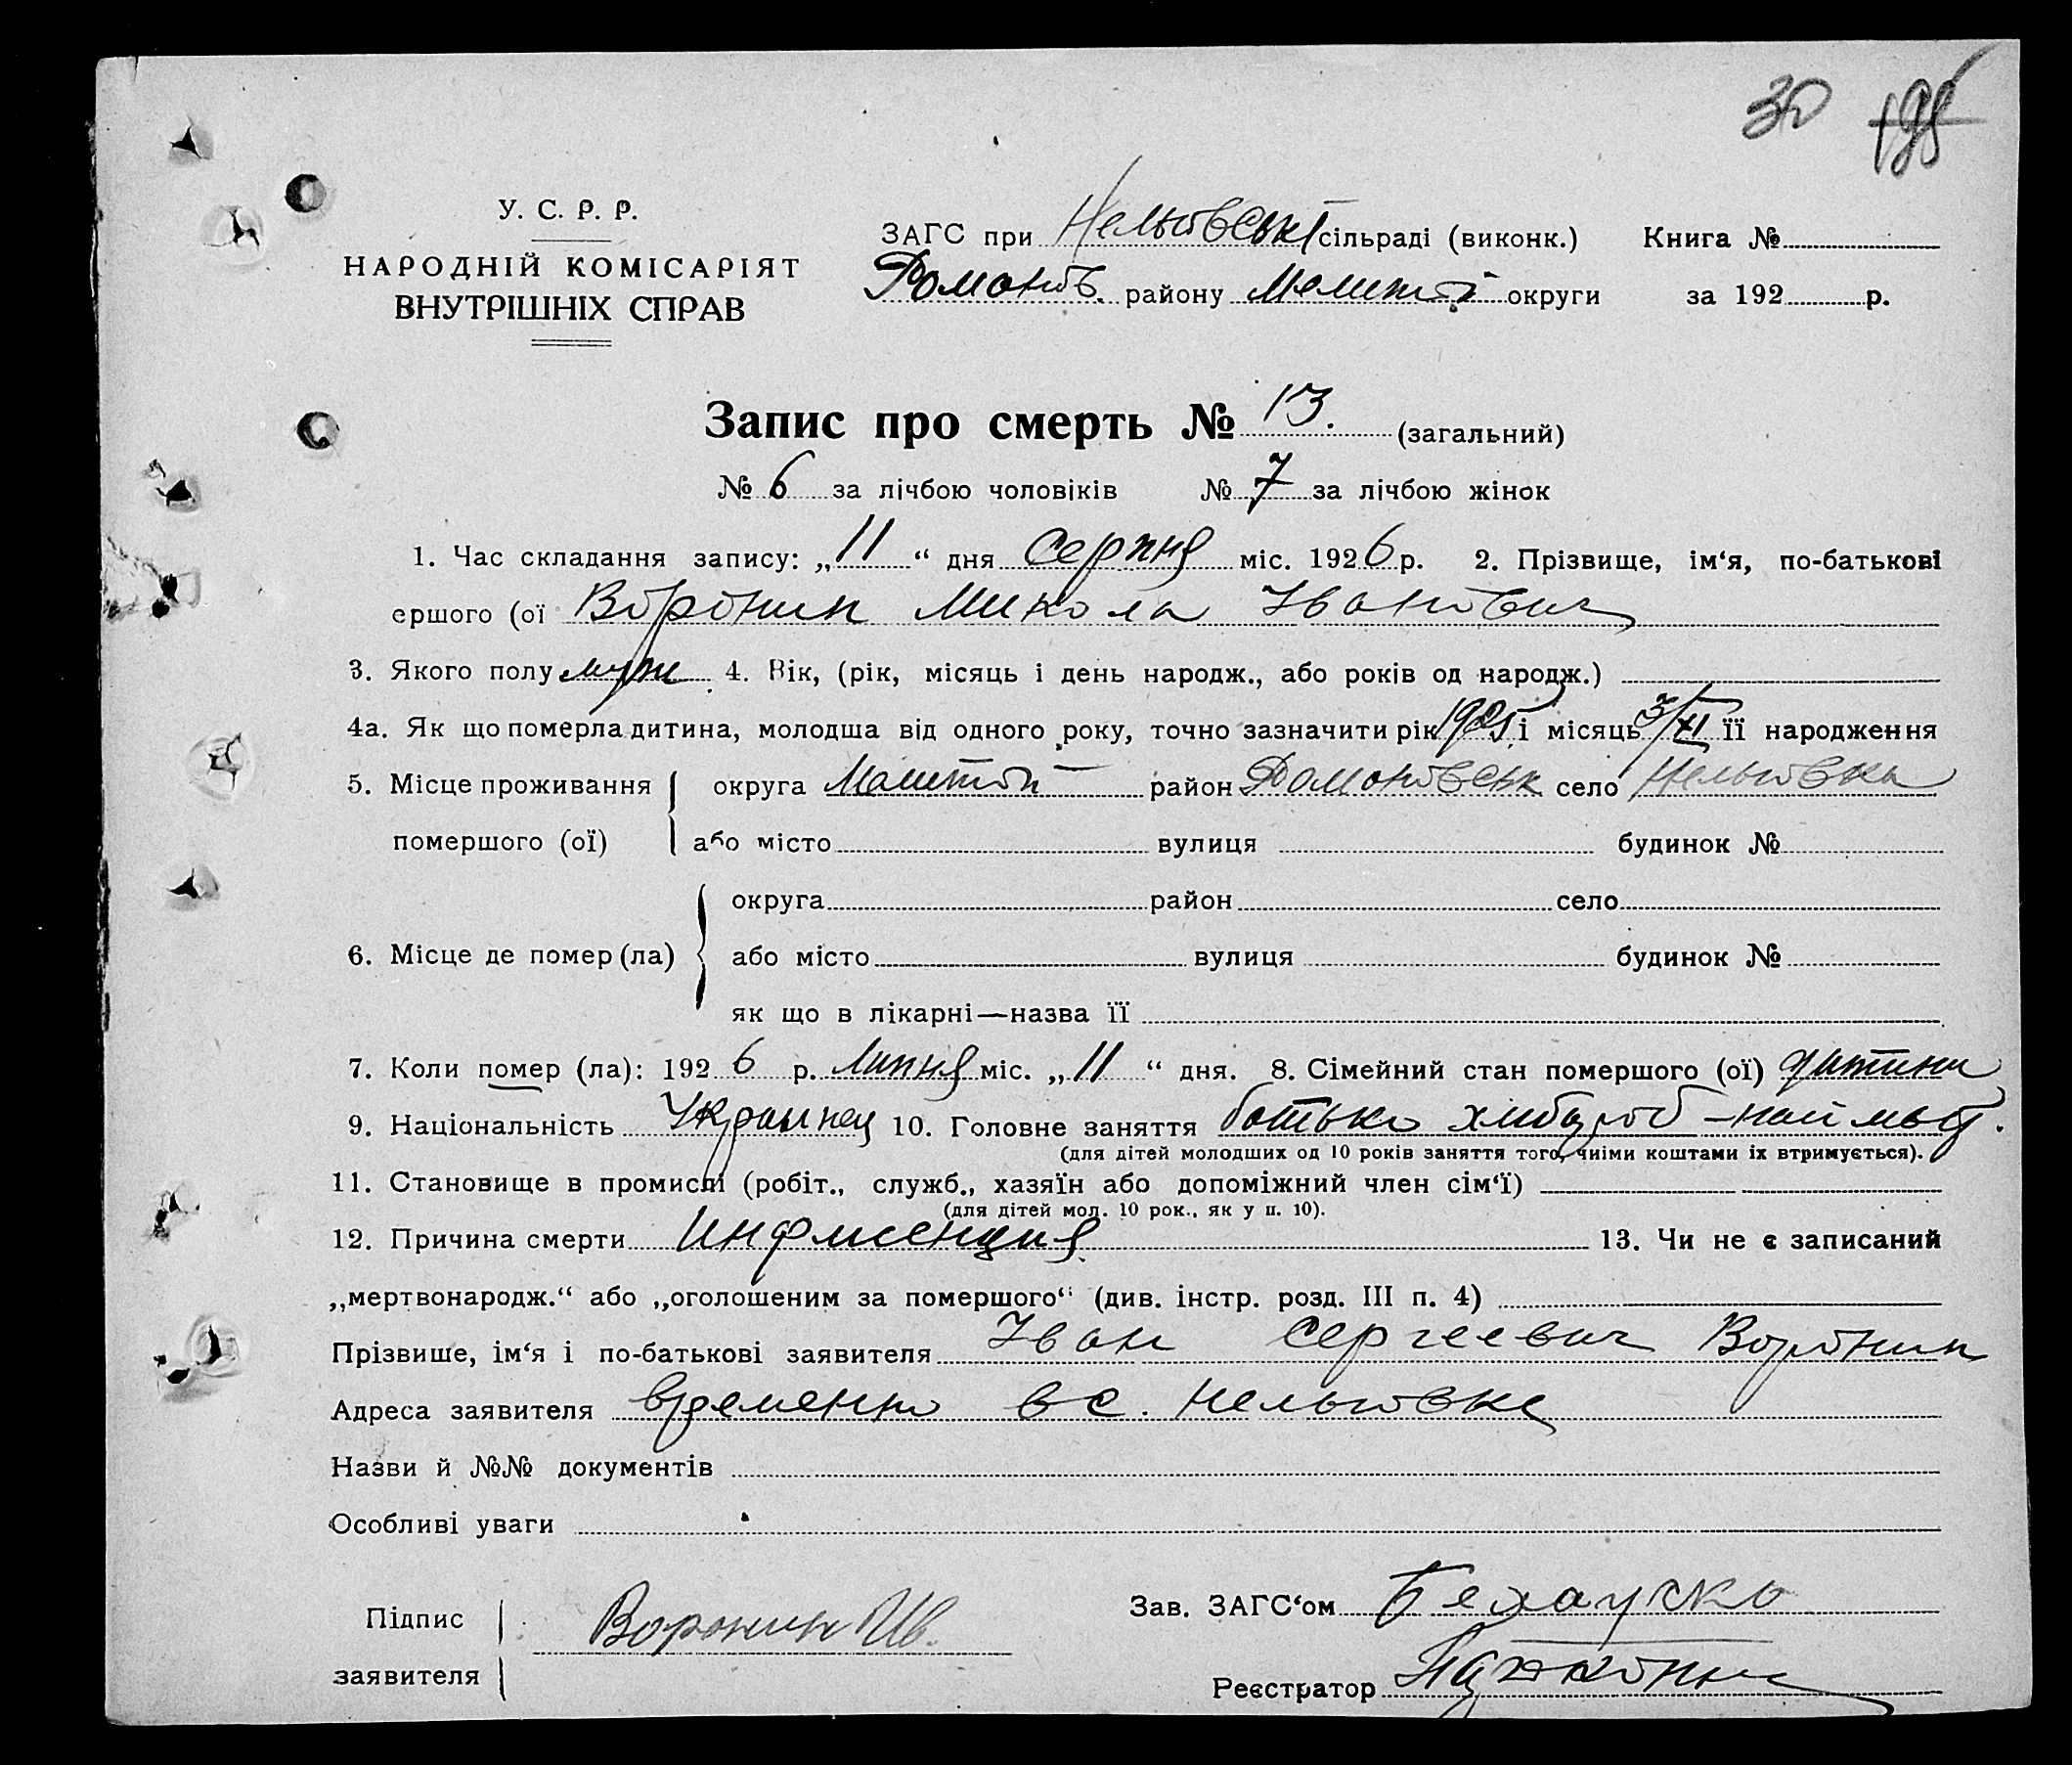 30 198
У. С. Р. Р.
НАРОДНІЙ КОМІСАРІЯТ
ВНУТРІШНІХ СПРАВ
ЗАГС при сільраді (виконк.) Книга №
району округи за 192 р.
Запис про смерть № 13. (загальний)
№ 6 за лічбою чоловіків № 7 за лічбою жінок
1. Час складання запису: „11“ дня Серпня міс. 1926 р. 2. Прізвище, ім‘я, по-батькові
ершого (ої Воронин Микола Іванович
3. Якого полу муж 4. Вік, (рік, місяць і день народж., або років од народж.)
4а. Як що померла дитина, молодша від одного року, точно зазначити рік 1925 і місяць 3/XI її народження
5. Місце проживання округа район село
помершого (ої) або місто вулиця будинок №
округа район село
6. Місце де помер (ла) або місто вулиця будинок №
як що в лікарні—назва її
7. Коли помер (ла): 1926 р. Липня міс. „11“ дня. 8. Сімейний стан помершого (ої) дитина
9. Національність Украинец 10. Головне заняття батько хлібороб -
(для дітей молодших од 10 років заняття того, чиїми коштами їх втримується).
11. Становище в промислі (робіт., служб., хазяїн або допоміжний член сім‘ї)
(для дітей мол. 10 рок., як у п. 10).
12. Причина смерти 13. Чи не є записаний
„мертвонародж.“ або „оголошеним за помершого“ (див. інстр. розд. III п. 4)
Прізвище, ім‘я і по-батькові заявителя Іван Сергеевич Воронин
Адреса заявителя временно в с.
Назви й №№ документів
Особливі уваги
Підпис Воронин Ив. Зав. ЗАГС‘ом
заявителя Реєстратор